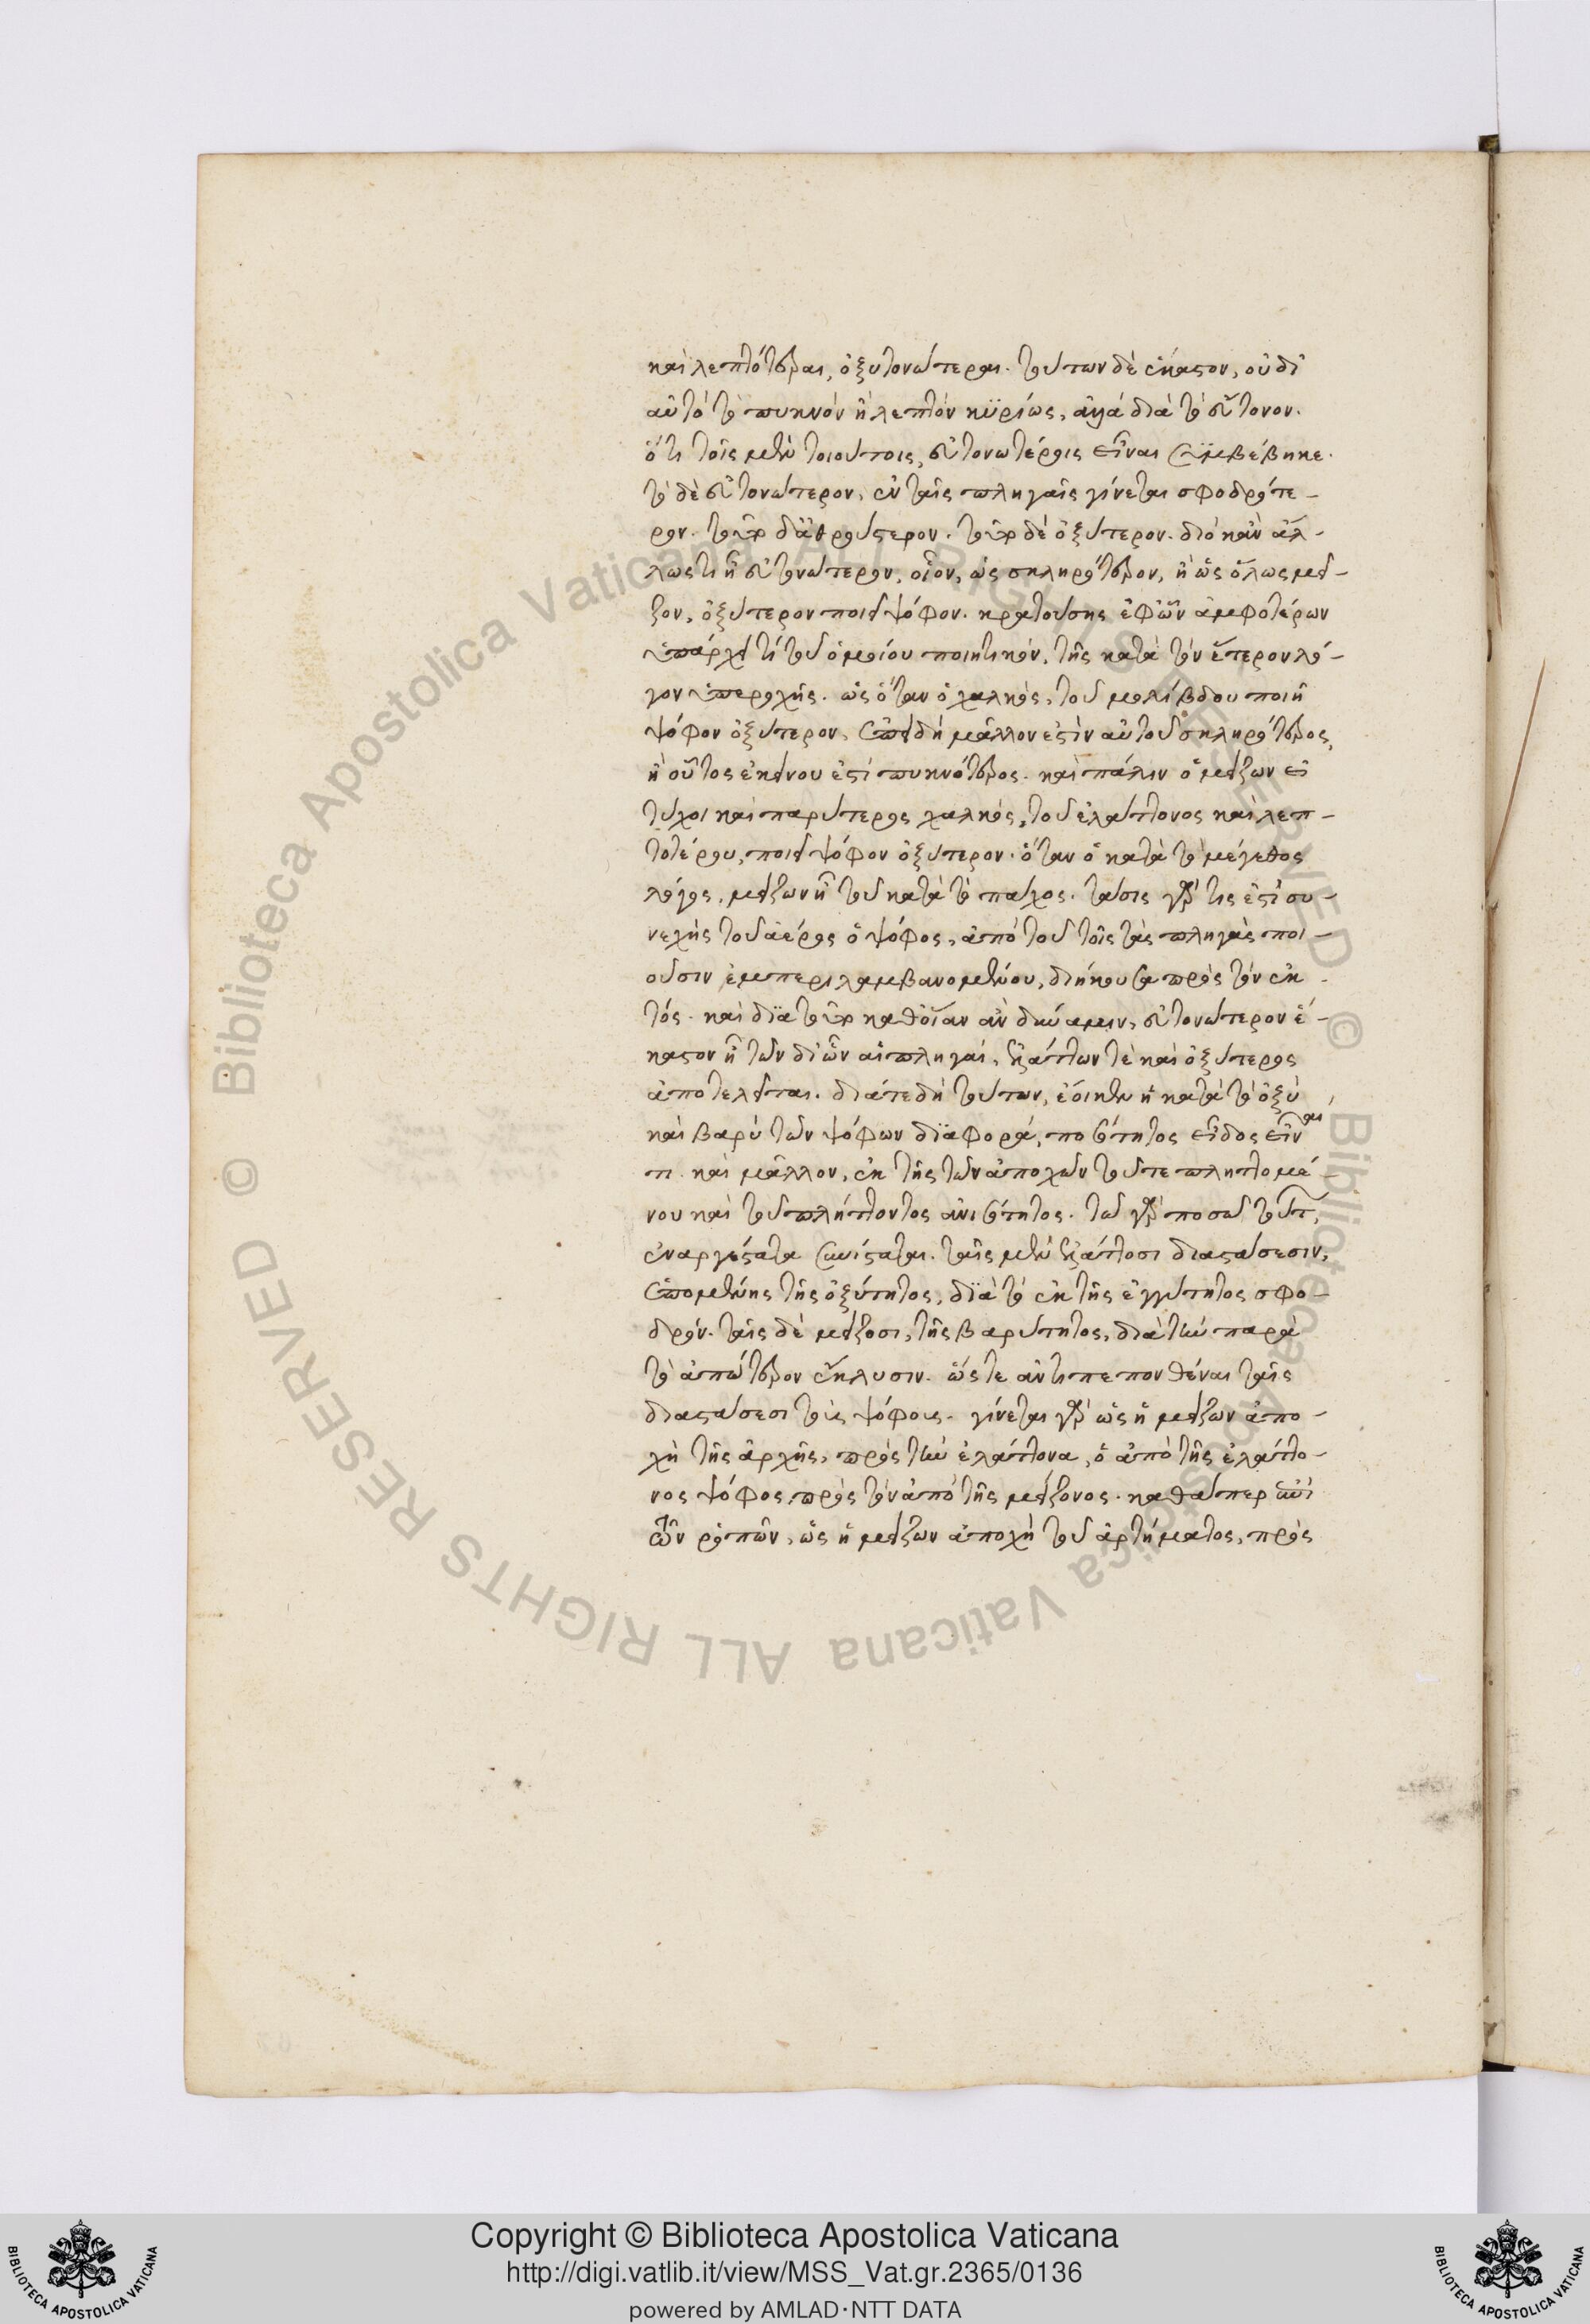 καὶ λεπτότεραι, ὀξυτονώτεραι. τούτων δὲ ἕκαστον, οὐ δι
αὐτὸ τὸ πυκνὸν ἢ λεπτὸν κϋρίως, ἀλλὰ διὰ τὸ εὔτονον.
ὅτι τοῖς μὲν τοιούτοις, εὐτονωτέροις εἶναι συμβέβηκε.
τὸ δὲ εὐτονώτερον, ἐν ταῖς πληγαῖς γίνεται σφοδρότε-
ρον. τοῦτο δ' ἀθρούστερον. τοῦτο δὲ ὀξύτερον. διὸ κἂν ἄλ-
λως τι ἢ εὐτονώτερον, οἷον, ὡς σκληρότερον, ἢ ὡς ὅλως μεῖ-
ζον, ὀξύτερον ποιεῖ ψόφον. κρατούσης ἐφ ὧν ἀμφοτέρων
ὑπάρχει τί τοῦ ὁμοίου ποιητικόν, τῆς κατὰ τὸν ἕτερον λό-
γον ὑπεροχῆς. ὡς ὅταν ὁ χαλκὸς, τοῦ μολίβδου ποιῆ
ψόφον ὀξύτερον, ἐπειδὴ μᾶλλον ἐστὶν αὐτοῦ σκληρότερος,
ἢ οὗτος ἐκείνου ἐστὶ πυκνότερος. καὶ πάλιν ὁ μείζων εἰ
τύχοι καὶ παχύτερος χαλκὸς, τοῦ ἐλάττονος καὶ λεπ-
τοτέρου, ποιεῖ ψόφον ὀξύτερον. ὅταν ὁ κατὰ τὸ μέγεθος
λόγος, μείζων ἢ τοῦ κατὰ τὸ πάχος. τάσις γάρ τις ἐστὶ συ-
νεχὴς τοῦ ἀέρος ὁ ψόφος, ἀπὸ τοῦ τοῖς τὰς πληγὰς ποι-
οῦσιν ἐμπεριλαμβανομένου, διήκουσα πρὸς τὸν ἐκ-
τός. καὶ δϊὰ τοῦτο καθ οἵαν ἂν δύναμιν, εὐτονώτερον ἕ-
καστον ἢ τῶν δι ὧν αἱ πληγαί, ἐλάττων τὲ καὶ ὀξύτερος
ἀποτελεῖται. διά τε δὴ τούτων, ἔοικεν ἡ κατὰ τὸ ὀξὺ
καὶ βαρὺ τῶν ψόφων δϊαφορά, ποσότητος εἶδος εἶναί
τι. καὶ μᾶλλον, ἐκ τῆς τῶν ἀποχῶν τοῦ τε πληττομέ-
νου καὶ τοῦ πλήττοντος ἀνισότητος. τῶ γὰρ ποσῶ τούτ,
ἐναργέστατα συνίσταται. ταῖς μὲν ἐλάττοσι διαστάσεσιν,
ἑπομένης τῆς ὀξύτητος, δϊὰ τὸ ἐκ τῆς ἐγγύτητος σφο-
δρόν. ταῖς δὲ μείζοσι, τῆς βαρύτητος, διὰ τὴν παρὰ
τὸ ἀπώτερον ἔκλυσιν. ὥστε ἀντιπεπονθέναι ταῖς
διαστάσεσι τοὺς ψόφους. γίνεται γὰρ ὡς ἡ μείζων ἀπο-
χὴ τῆς ἀρχῆς, πρὸς τὴν ἐλάττονα, ὁ ἀπὸ τῆς ἐλάττο-
νος ψόφος, πρὸς τὸν ἀπὸ τῆς μείζονος. καθάπερ ἐπὶ
τῶν ῥοπῶν, ὡς ἡ μείζων ἀποχὴ τοῦ ἀρτήματος, πρὸς
Copyright © Biblioteca Apostolica Vaticana
http://digi.vatlib.it/view/MSS_Vat.gr.2365/0136
powered by AMLAD·NTT DATA
BIBLIOTECA APOSTOLICA VATICANA
BIBLIOTECA APOSTOLICA VATICANA
© Biblioteca Apostolica Vaticana ALL RIGHTS RESERVED
© Biblioteca Apostolica Vaticana ALL RIGHTS RESERVED